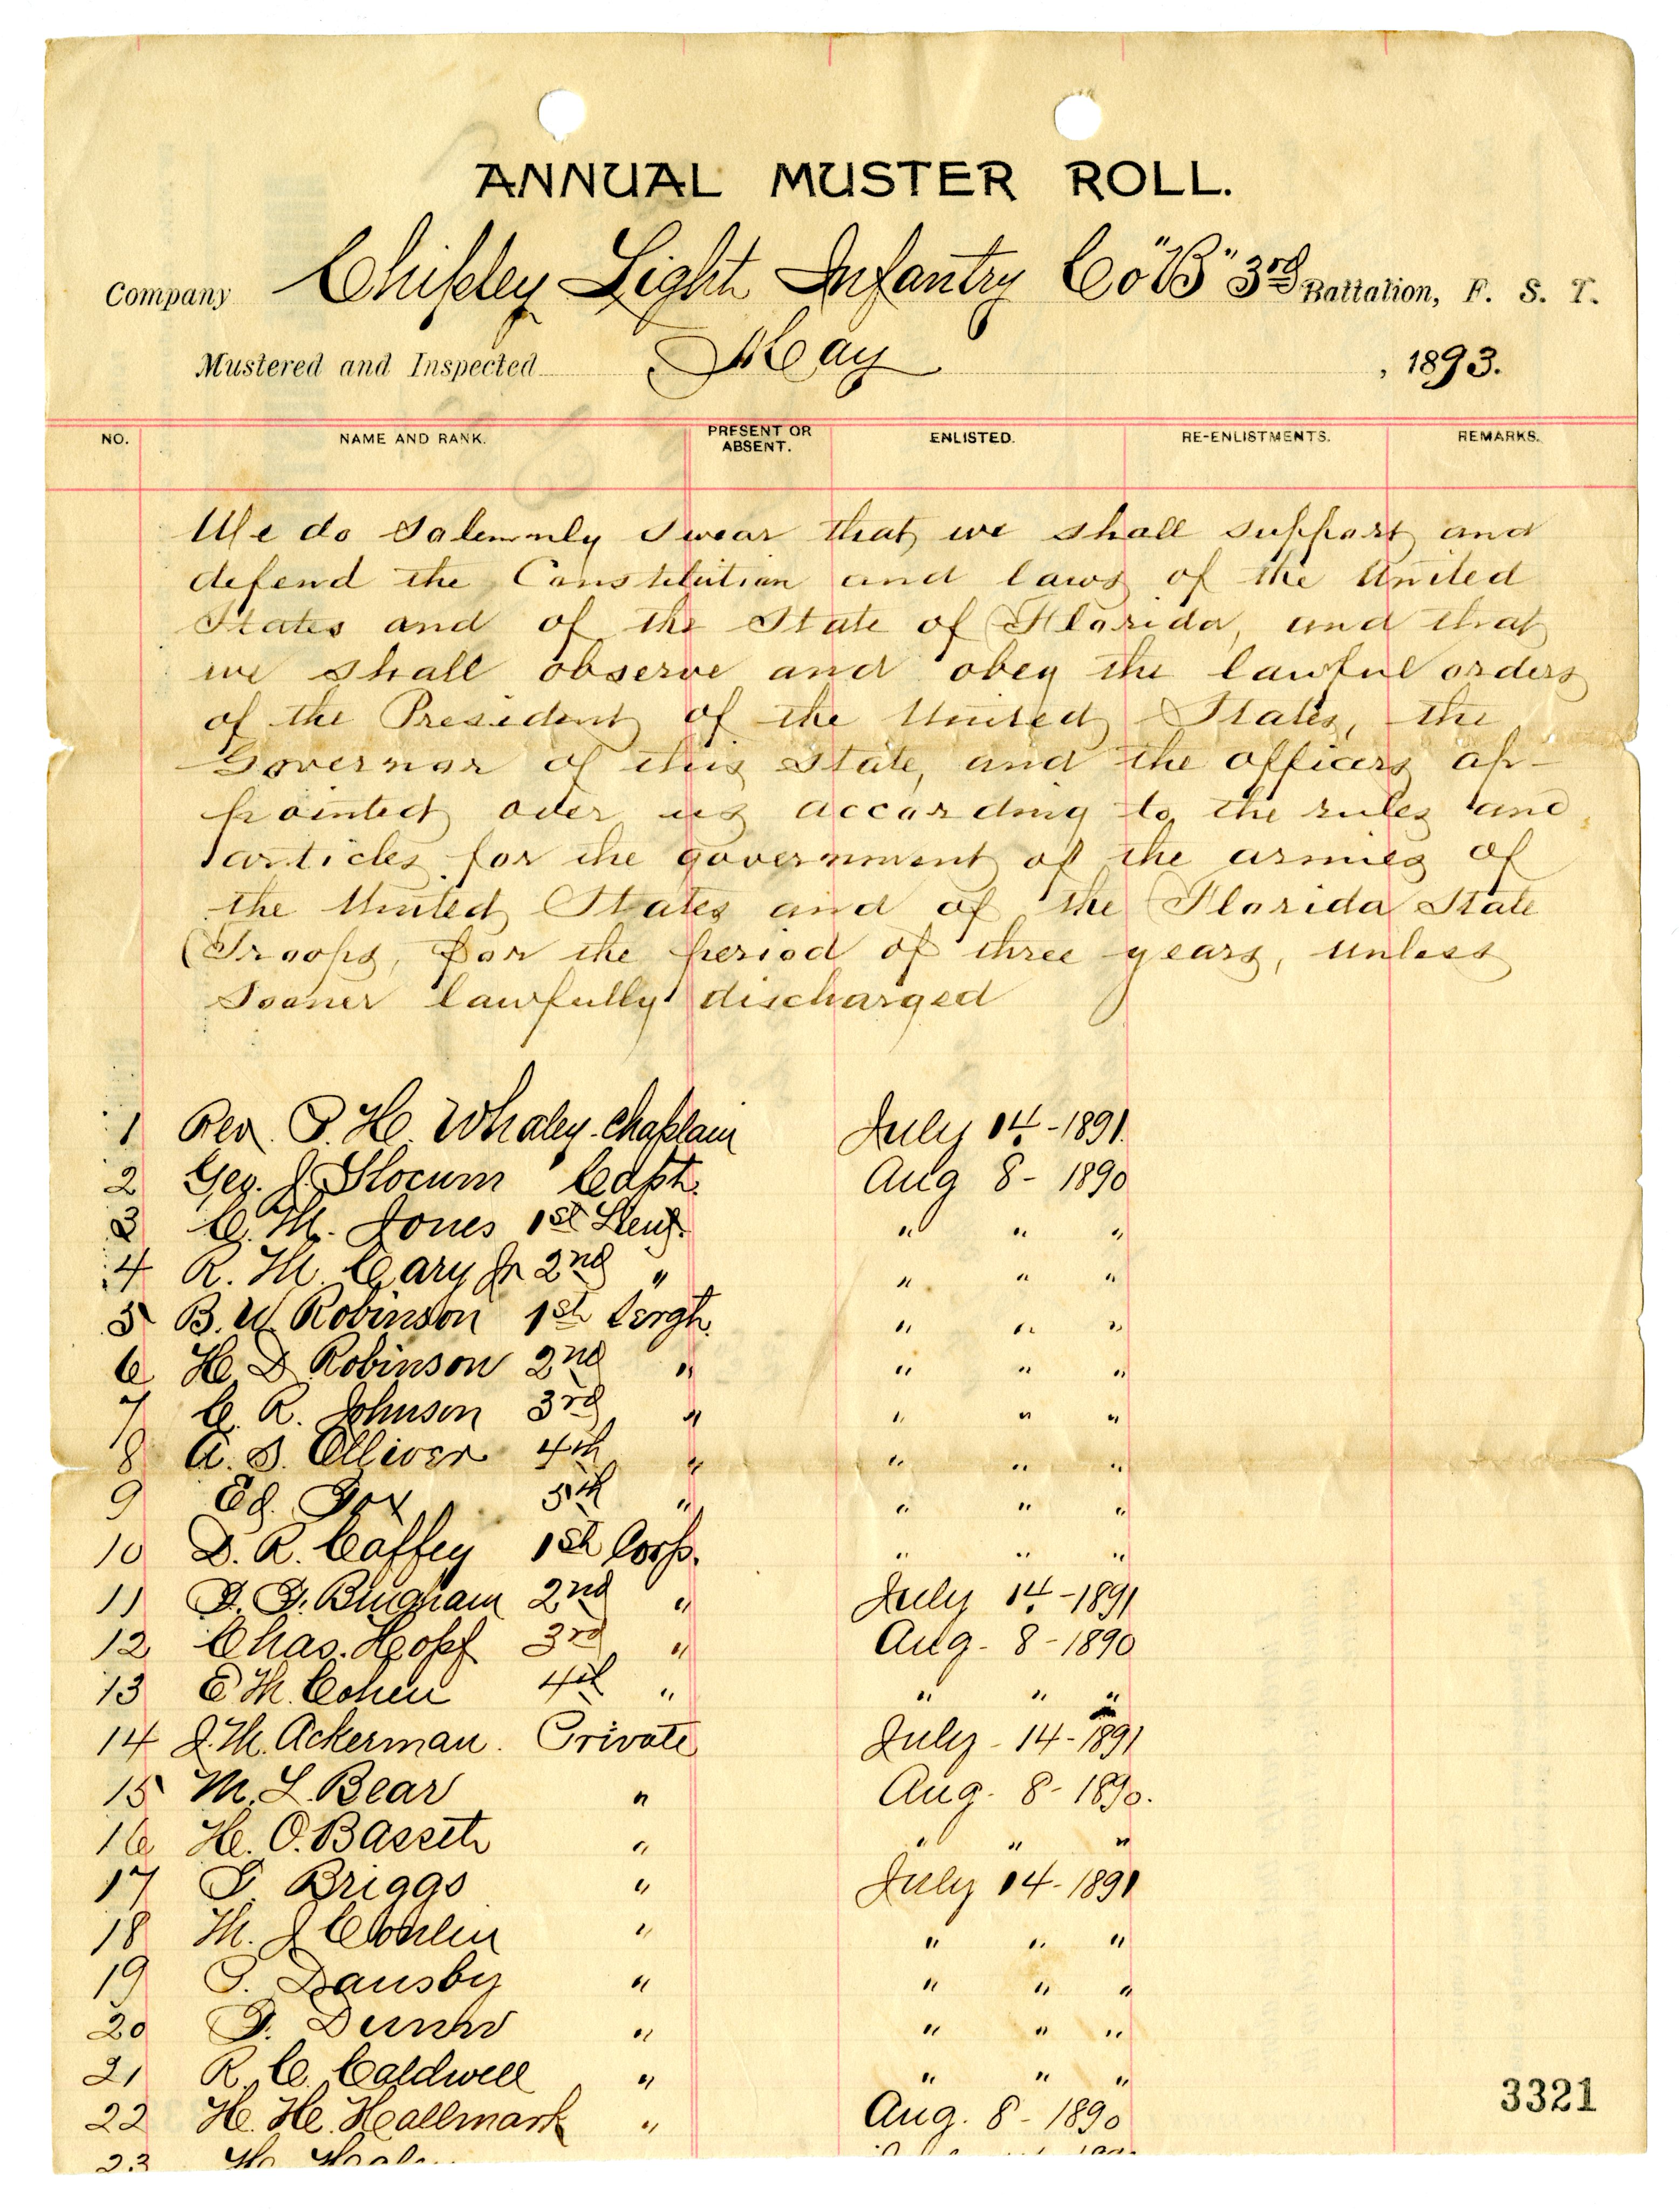 ANNUAL MUSTER ROLL.
Company Chipley Light Infantry Co "B" 3rd Battalion, F. S. T.
Mustered and Inspected May , 1893.
NO. NAME AND RANK. PRESENT OR ABSENT. ENLISTED. RE-ENLISTMENTS. REMARKS.
We do solemnly swear that we shall support and
defend the Constitution and laws of the United
States and of the State of Florida, and that
we shall observe and obey the lawful orders
of the President of the United States, the
Governor of this State, and the officers ap-
pointed over us according to the rules and
articles for the government of the armies of
the United States and of the Florida State
Troops, for the period of three years, unless
sooner lawfully discharged
1 Rev. P. H. Whaley - Chaplain July 14 - 1891.
2 Geo. J. Slocum Capt. Aug 8 - 1890
3 C. M. Jones 1st Lieut. " " "
4 R. M. Cary Jr 2nd " " " "
5 B. W. Robinson 1st Sergt. " " "
6 H. D. Robinson 2nd " " " "
7 C. R. Johnson 3rd " " " "
8 A. S. Olliver 4th " " " "
9 Ed. Fox 5th " " " "
10 D. R. Caffey 1st Corp. " " "
11 F. F. Bingham 2nd " July 14 - 1891
12 Chas. Hopf 3rd " Aug - 8 - 1890
13 E M. Cohen 4th " " " "
14 J. M. Ackerman. Private July - 14 - 1891
15 M. L. Bear " Aug - 8 - 1890.
16 H. O. Bassett " " " "
17 Briggs " July 14 - 1891
18 M. J. Conlin " " " "
19 Dansby " " " "
20 F. Dunn " " " "
21 R. C. Caldwell " " " "
22 H. H. Hallmark " Aug. 8 - 1890
23
3321